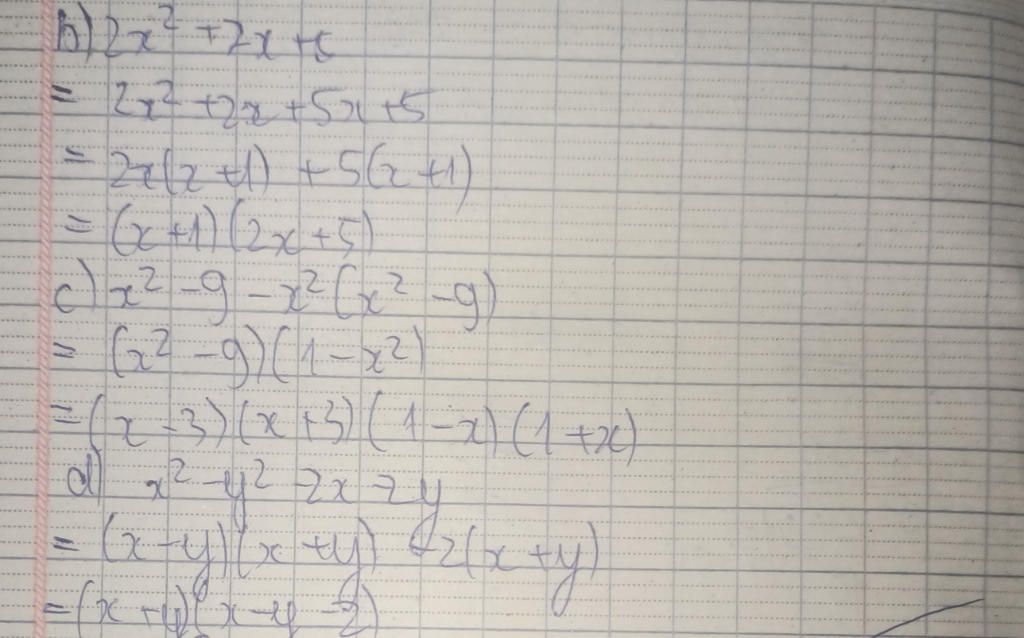 b) 2x² + 7x + 5
= 2x² + 2x + 5x + 5
= 2x(x+1) + 5(x+1)
= (x+1)(2x+5)
c) x² - 9 - x²(x² - 9)
= (x² - 9)(1 - x²)
= (x - 3)(x + 3)(1 - x)(1 + x)
d) x² - y² - 2x - 2y
= (x - y)(x + y) - 2(x + y)
= (x + y)(x - y - 2)